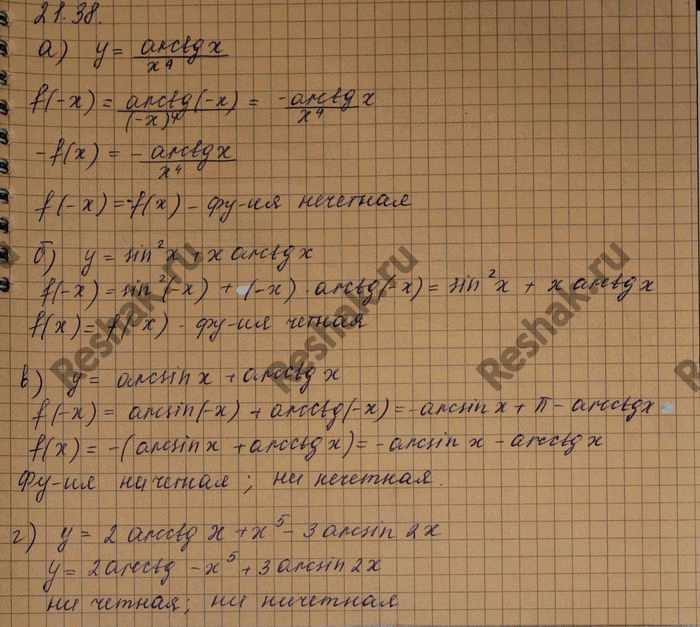 21.38.
а) y = arctg x / x⁴
f(-x) = arctg(-x) / (-x)⁴ = -arctg x / x⁴
-f(x) = - arctg x / x⁴
f(-x) = -f(x) - фу-ия нечетная
б) y = sin² x + x arctg x
f(-x) = sin²(-x) + (-x) · arctg(-x) = sin² x + x arctg x
f(x) = f(-x) - фу-ия четная
в) y = arcsin x + arcctg x
f(-x) = arcsin(-x) + arcctg(-x) = -arcsin x + π - arcctg x
f(x) = -(arcsin x + arcctg x) = -arcsin x - arcctg x
Фу-ия ни четная; ни нечетная.
г) y = 2 arcctg x + x⁵ - 3 arcsin 2x
y = 2 arcctg - x⁵ + 3 arcsin 2x
ни четная; ни ничетная
Reshak.ru
Reshak.ru
Reshak.ru